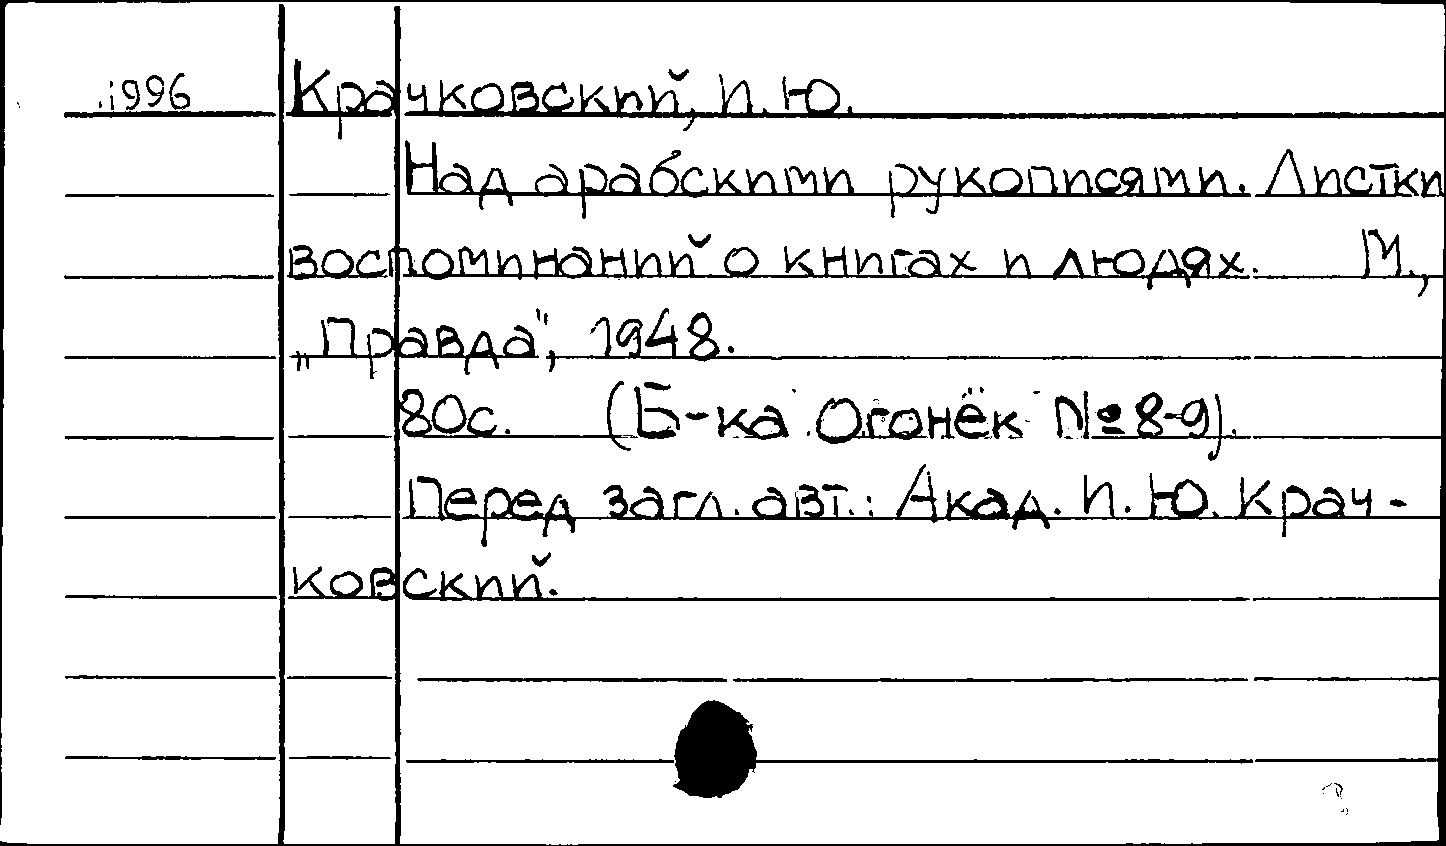 1996 Крачковский, И. Ю.
Над арабскими рукописями. Листки
воспоминаний о книгах и людях. М.,
„Правда", 1948.
80с. (Б-ка Огонёк №8-9).
Перед загл. авт.: Акад. И. Ю. Крач-
ковский.